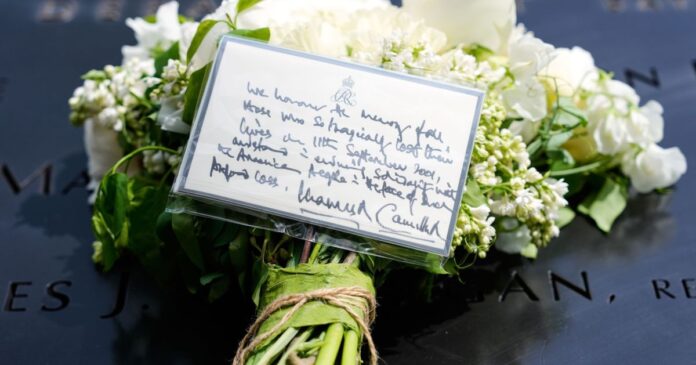 We honour the memory of all
those who so tragically lost their
lives on 11th September 2001,
and stand in enduring Solidarity with
the American People in the face of such
profound loss. Charles R Camilla
MA
ES J.
MAN, RE